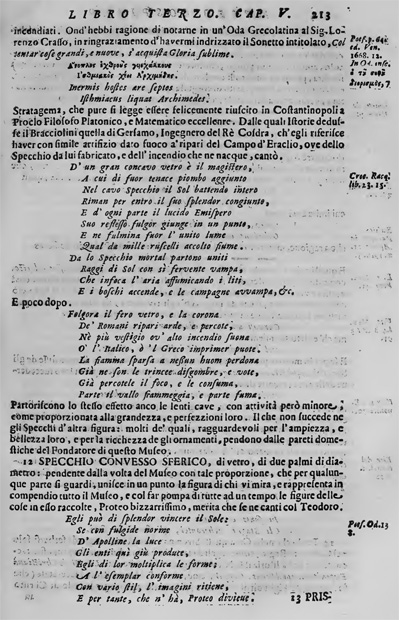 LIBRO TERZO. CAP. V. 213
incendiati. Ond'hebbi ragione di notarne in un'Oda Grecolatina al Sig. Lo-
renzo Crasso, in ringraziamento d'havermi indrizzato il Sonetto intitolato, Col
tentar cose grandi, e nuove, s'acquista Gloria sublime.
Inermis hostes are septos
Isthmiacus liquat Archimedes.
Stratagema, che pure si legge essere felicemente riuscito in Costantinopoli a
Proclo Filosofo Platonico, e Matematico eccellente. Dalle quali Istorie dedus-
se il Bracciolini quella di Gersamo, Ingegnero del Rè Cosdra, ch'egli riferisce
haver con simile artifizio dato fuoco a' ripari del Campo d'Eraclio, ove dello
Specchio da lui fabricato, e dell'incendio che ne nacque, cantò.
D'un gran concavo vetro è il magistero,
A cui di fuor tenace piombo aggiunto
Nel cavo Specchio il Sol battendo intero
Riman per entro il suo splendor congiunto,
E d'ogni parte il lucido Emispero
Suo restesso fulgór giunge in un punto,
E ne fulmina fuor l'unito lume
Qual da mille ruscelli accolto fiume.
Da lo Specchio mortal partono uniti
Raggi di Sol con sì fervente vampa,
Che infoca l'aria affumicando i liti,
E i boschi accende, e le campagne avvampa, &c.
E poco dopo.
Folgora il fero vetro, e la corona
De' Romani ripari arde, e percote,
Nè più vestigio ov'alto incendio suona
O l'Italico, è 'l Greco imprimer puote.
La fiamma sparsa a nessun huom perdona
Già ne son le trincee disgombre, e vote,
Già percotele il foco, e le consuma,
Parte il vallo fiammeggia, e parte fuma.
Partoriscono lo stesso effetto anco le lenti cave, con attività però minore,
come proporzionata alla grandezza, e perfezzioni loro. Il che non succede ne
gli Specchi d'altra figura: molti de' quali, ragguardevoli per l'ampiezza, e
bellezza loro, e per la ricchezza de gli ornamenti, pendono dalle pareti dome-
stiche del Fondatore di questo Museo.
12 SPECCHIO CONVESSO SFERICO, di vetro, di due palmi di dia-
metro: pendente dalla volta del Museo con tale proporzione, che per qualun-
que parte si guardi, unisce in un punto la figura di chi vi mira, e rappresenta in
compendio tutto il Museo, e col far pompa di tutte ad un tempo le figure delle
cose in esso raccolte, Proteo bizzarrissimo, merita che se ne canti col Teodoro.
Egli può di splendor vincere il Sole:
Se con fulgide norme
D'Apolline la luce
Gli enti quì giù produce,
Egli di lor moltiplica le forme;
A l'esemplar conforme
Con vario stil, l'imagini ritiene,
E per tante, che n'hà, Proteo diviene.
13 PRIS-
ed. Ven.
1668. 12.
Croc. Racq.
lib. 23. 15.
Poes. Od. 13
8.